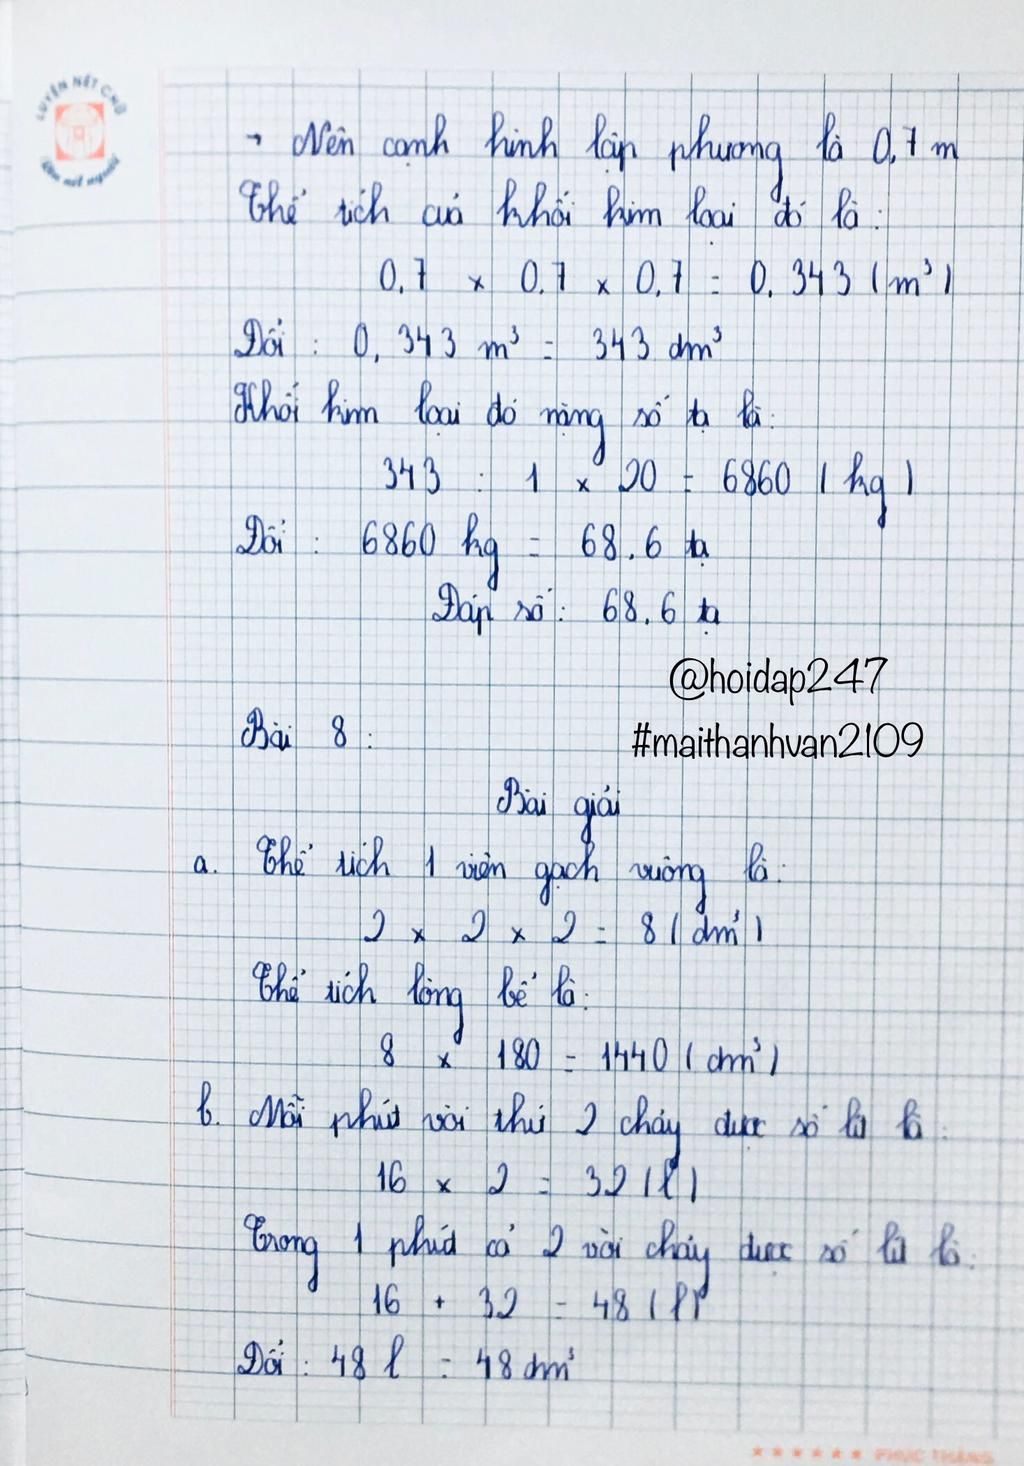 LUYỆN NÉT CHỮ
Rèn nết người
→ Nên cạnh hình lập phương là 0,7 m
Thể tích của khối kim loại đó là:
0,7 × 0,7 × 0,7 = 0,343 (m³)
Đổi : 0,343 m³ = 343 dm³
Khối kim loại đó nặng số tạ là:
343 : 1 × 20 = 6860 (kg)
Đổi : 6860 kg = 68,6 tạ
Đáp số : 68,6 tạ
@hoidap247
#maithanhvan2109
Bài 8 :
Bài giải
a. Thể tích 1 viên gạch vuông là:
2 × 2 × 2 = 8 (dm³)
Thể tích lòng bể là:
8 × 180 = 1440 (dm³)
b. Mỗi phút vòi thứ 2 chảy được số lít là:
16 × 2 = 32 (l)
Trong 1 phút cả 2 vòi chảy được số lít là:
16 + 32 = 48 (l)
Đổi : 48 l = 48 dm³
PHÚC THẮNG